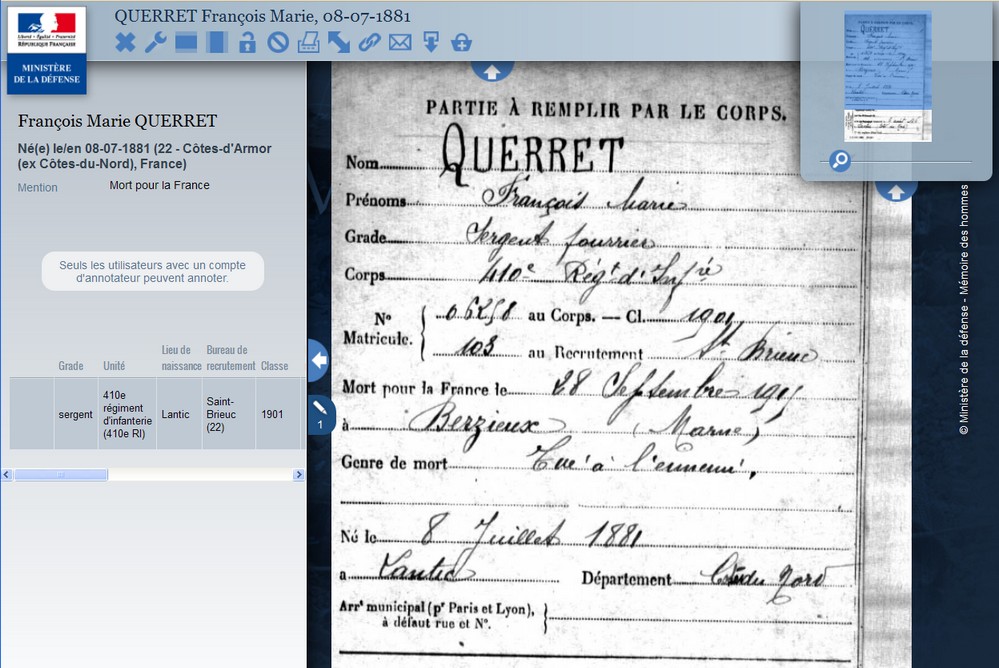 QUERRET François Marie, 08-07-1881
Liberté • Égalité • Fraternité
RÉPUBLIQUE FRANÇAISE
MINISTÈRE
DE LA DÉFENSE
François Marie QUERRET
Né(e) le/en 08-07-1881 (22 - Côtes-d'Armor
(ex Côtes-du-Nord), France)
Mention Mort pour la France
Seuls les utilisateurs avec un compte
d'annotateur peuvent annoter.
Grade Unité Lieu de naissance Bureau de recrutement Classe
sergent 410e régiment d'infanterie (410e RI) Lantic Saint-Brieuc (22) 1901
PARTIE À REMPLIR PAR LE CORPS.
Nom QUERRET
Prénoms François Marie
Grade Sergent fourrier
Corps 410e Régt d'Infrie
No Matricule. { 06258 au Corps. — Cl. 1901
103 au Recrutement St Brieuc
Mort pour la France le 28 Septembre 1915
à Berzieux (Marne)
Genre de mort Tué à l'ennemi,
Né le 8 Juillet 1881
a Lantic Département Côtes du Nord
Arrt municipal (pr Paris et Lyon), }
à défaut rue et No.
1
© Ministère de la défense - Mémoire des hommes